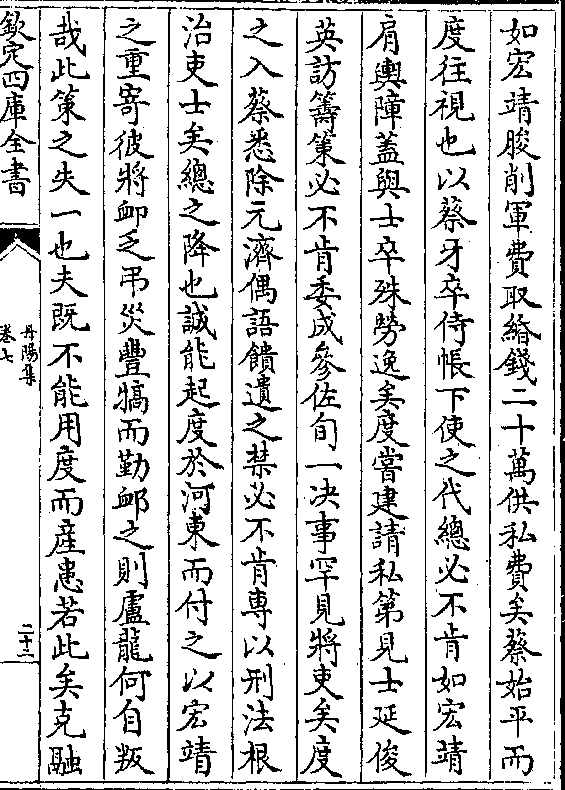 如宏靖朘削軍費取緡錢二十萬供私費矣蔡始平而
度往視也以蔡牙卒侍帳下使之代總必不肯如宏靖
肩輿障蓋與士卒殊勞逸矣度嘗建請私第見士延俊
英訪籌策必不肯委成參佐旬一決事罕見將吏矣度
之入蔡悉除元濟偶語饋遺之禁必不肯專以刑法根
治吏士矣總之降也誠能起度於河東而付之以宏靖
之重寄彼將卹乏弔災豐犒而勤䘏之則盧龍何自叛
哉此策之失一也夫既不能用度而產患若此矣克融
欽定四庫全書
丹陽集
卷七
二十二